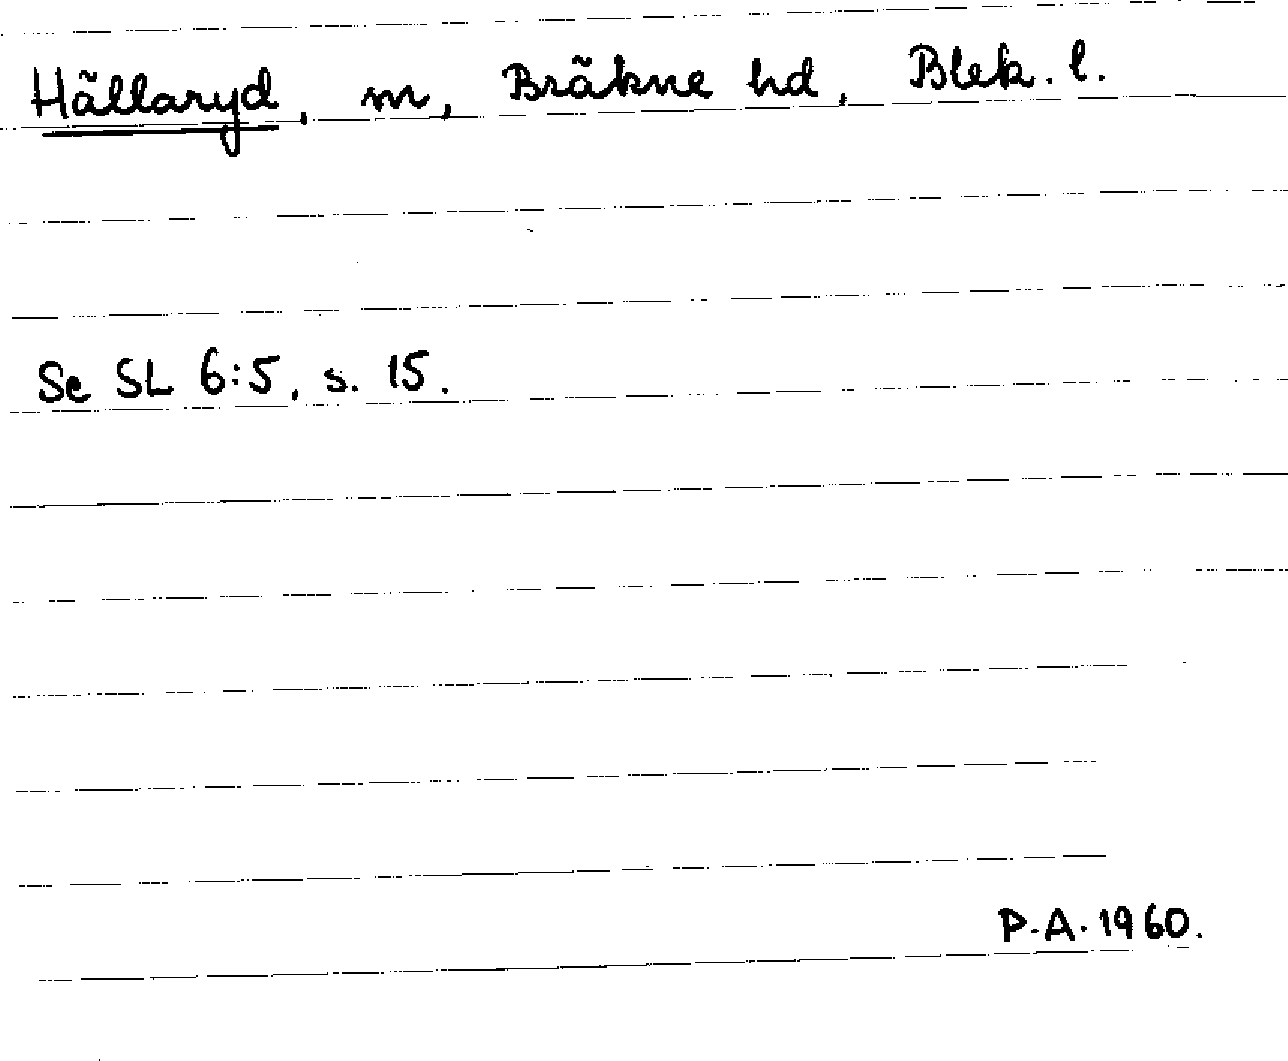 Hällaryd, m, Bräkne hd, Blek. l.
Se SL 6:5, s. 15.
P.A. 1960.